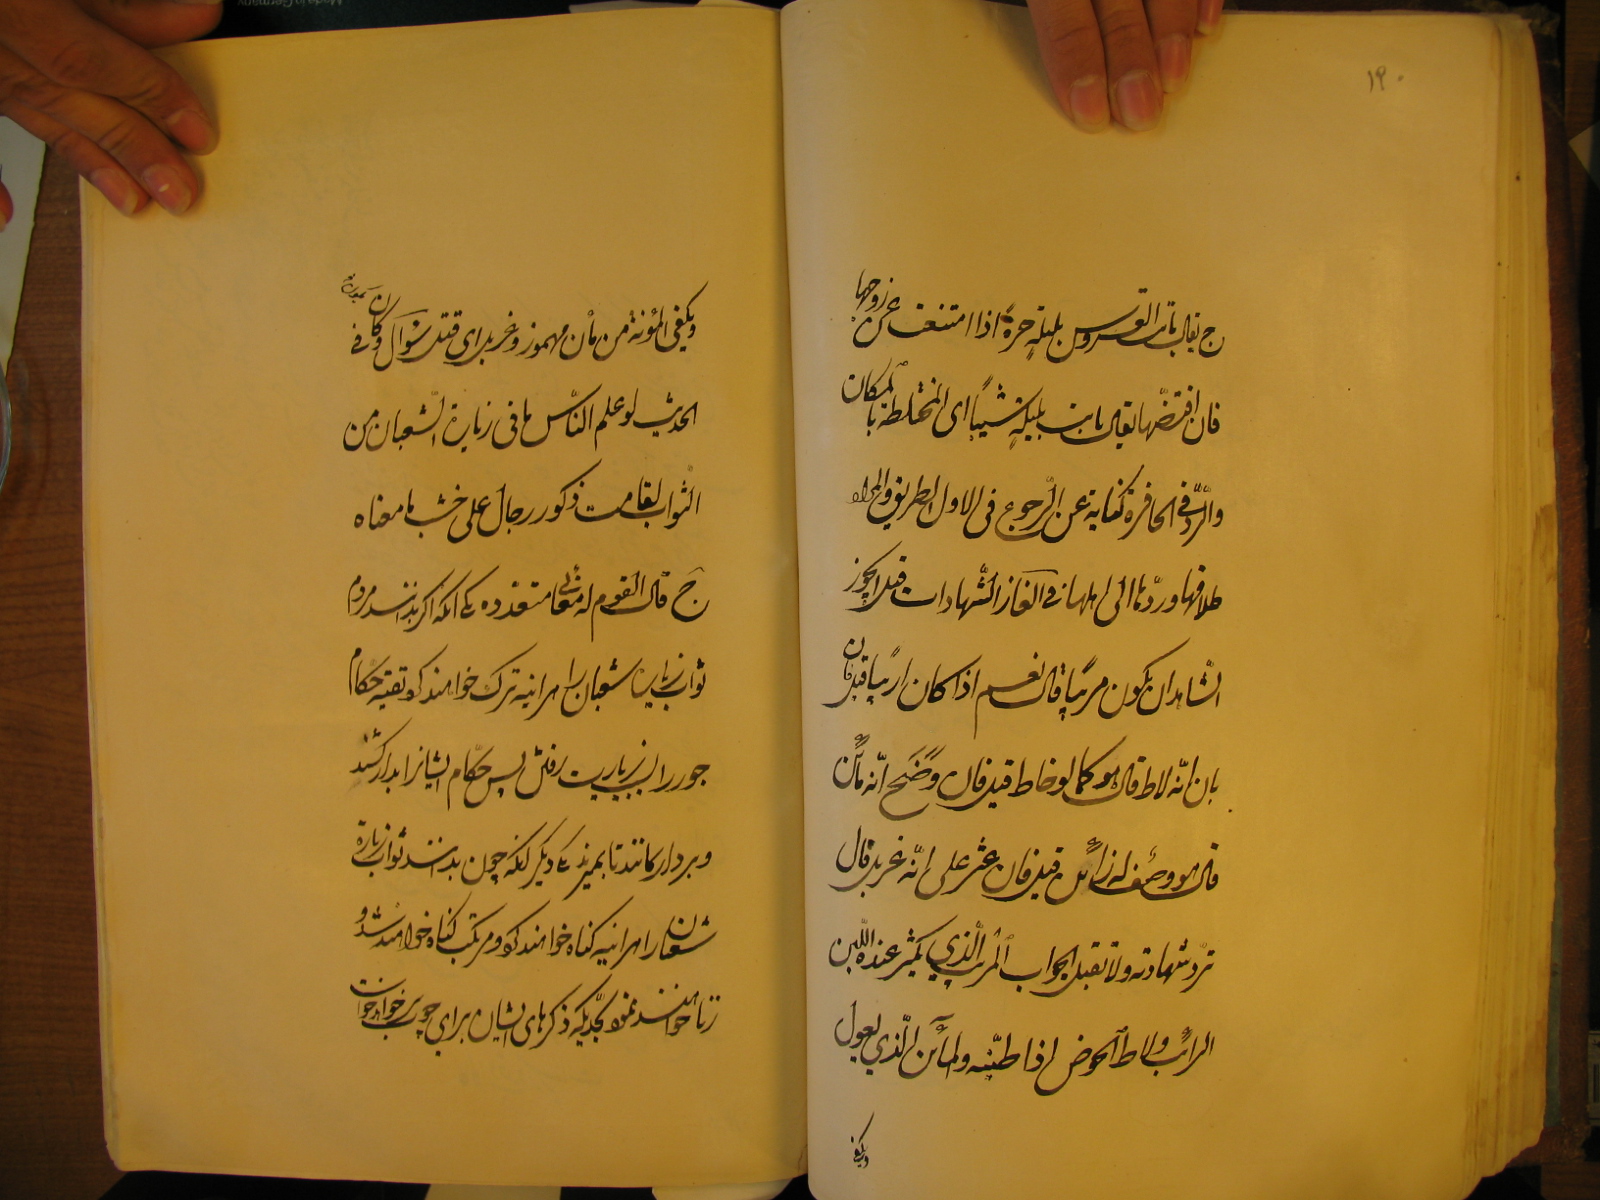 ۱۹۰
ج یقال باتت العروس بلیلة حرة اذا امتنعت عن زوجها
فان افتضّها یقال باتت بلیلة شیبا ای المختلطة بالمکان
والردّ فی الحافرة کنایة عن الرّجوع فی الاول الطریق والمراد
طلاقها وردّها الی اهلها فی الغاز الشّهادات قیل ایجوز
الشاهدان یکون مریبا قال نعم اذا کان اریبا قیل فان
بان انّه لاط قال هو کما لو خاط قیل فان وضح انّه مائن
قال هو وصف له زائن قیل فان عثر علی انّه غربل قال
تردّ شهادته ولا تقبل الجواب المریب الّذی یکثر عنده اللبن
الرائب ولاط الحوض اذا طیّنه والمائن الّذی یعول
ویکفی
ویکفی المؤنة من مأن مهموز وغربل ای قتل سؤال وکان فی
الحدیث لو علم النّاس ما فی زیارة الشعبان من
الثواب لقامت ذکور رجال علی خشب ما معناه
ج قال القوم له معانی متعدده یکی آنکه اگر بدانند مردم
ثواب زیارة شعبان را هر اینه ترک خواهند کرد تقیه حکام
جور را از زیارت رفتن پس حکّام ایشانرا بدار کشند
و بر دار مانند تا بمیرند یکی دیگر آنکه چون بدانند ثواب زیارة
شعبان را هر اینه گناه خواهند کرد و مرتکب گناه خواهند شد و
زنا خواهند نمود بحدیکه ذکرهای ایشان برای چوب خواهد خواست